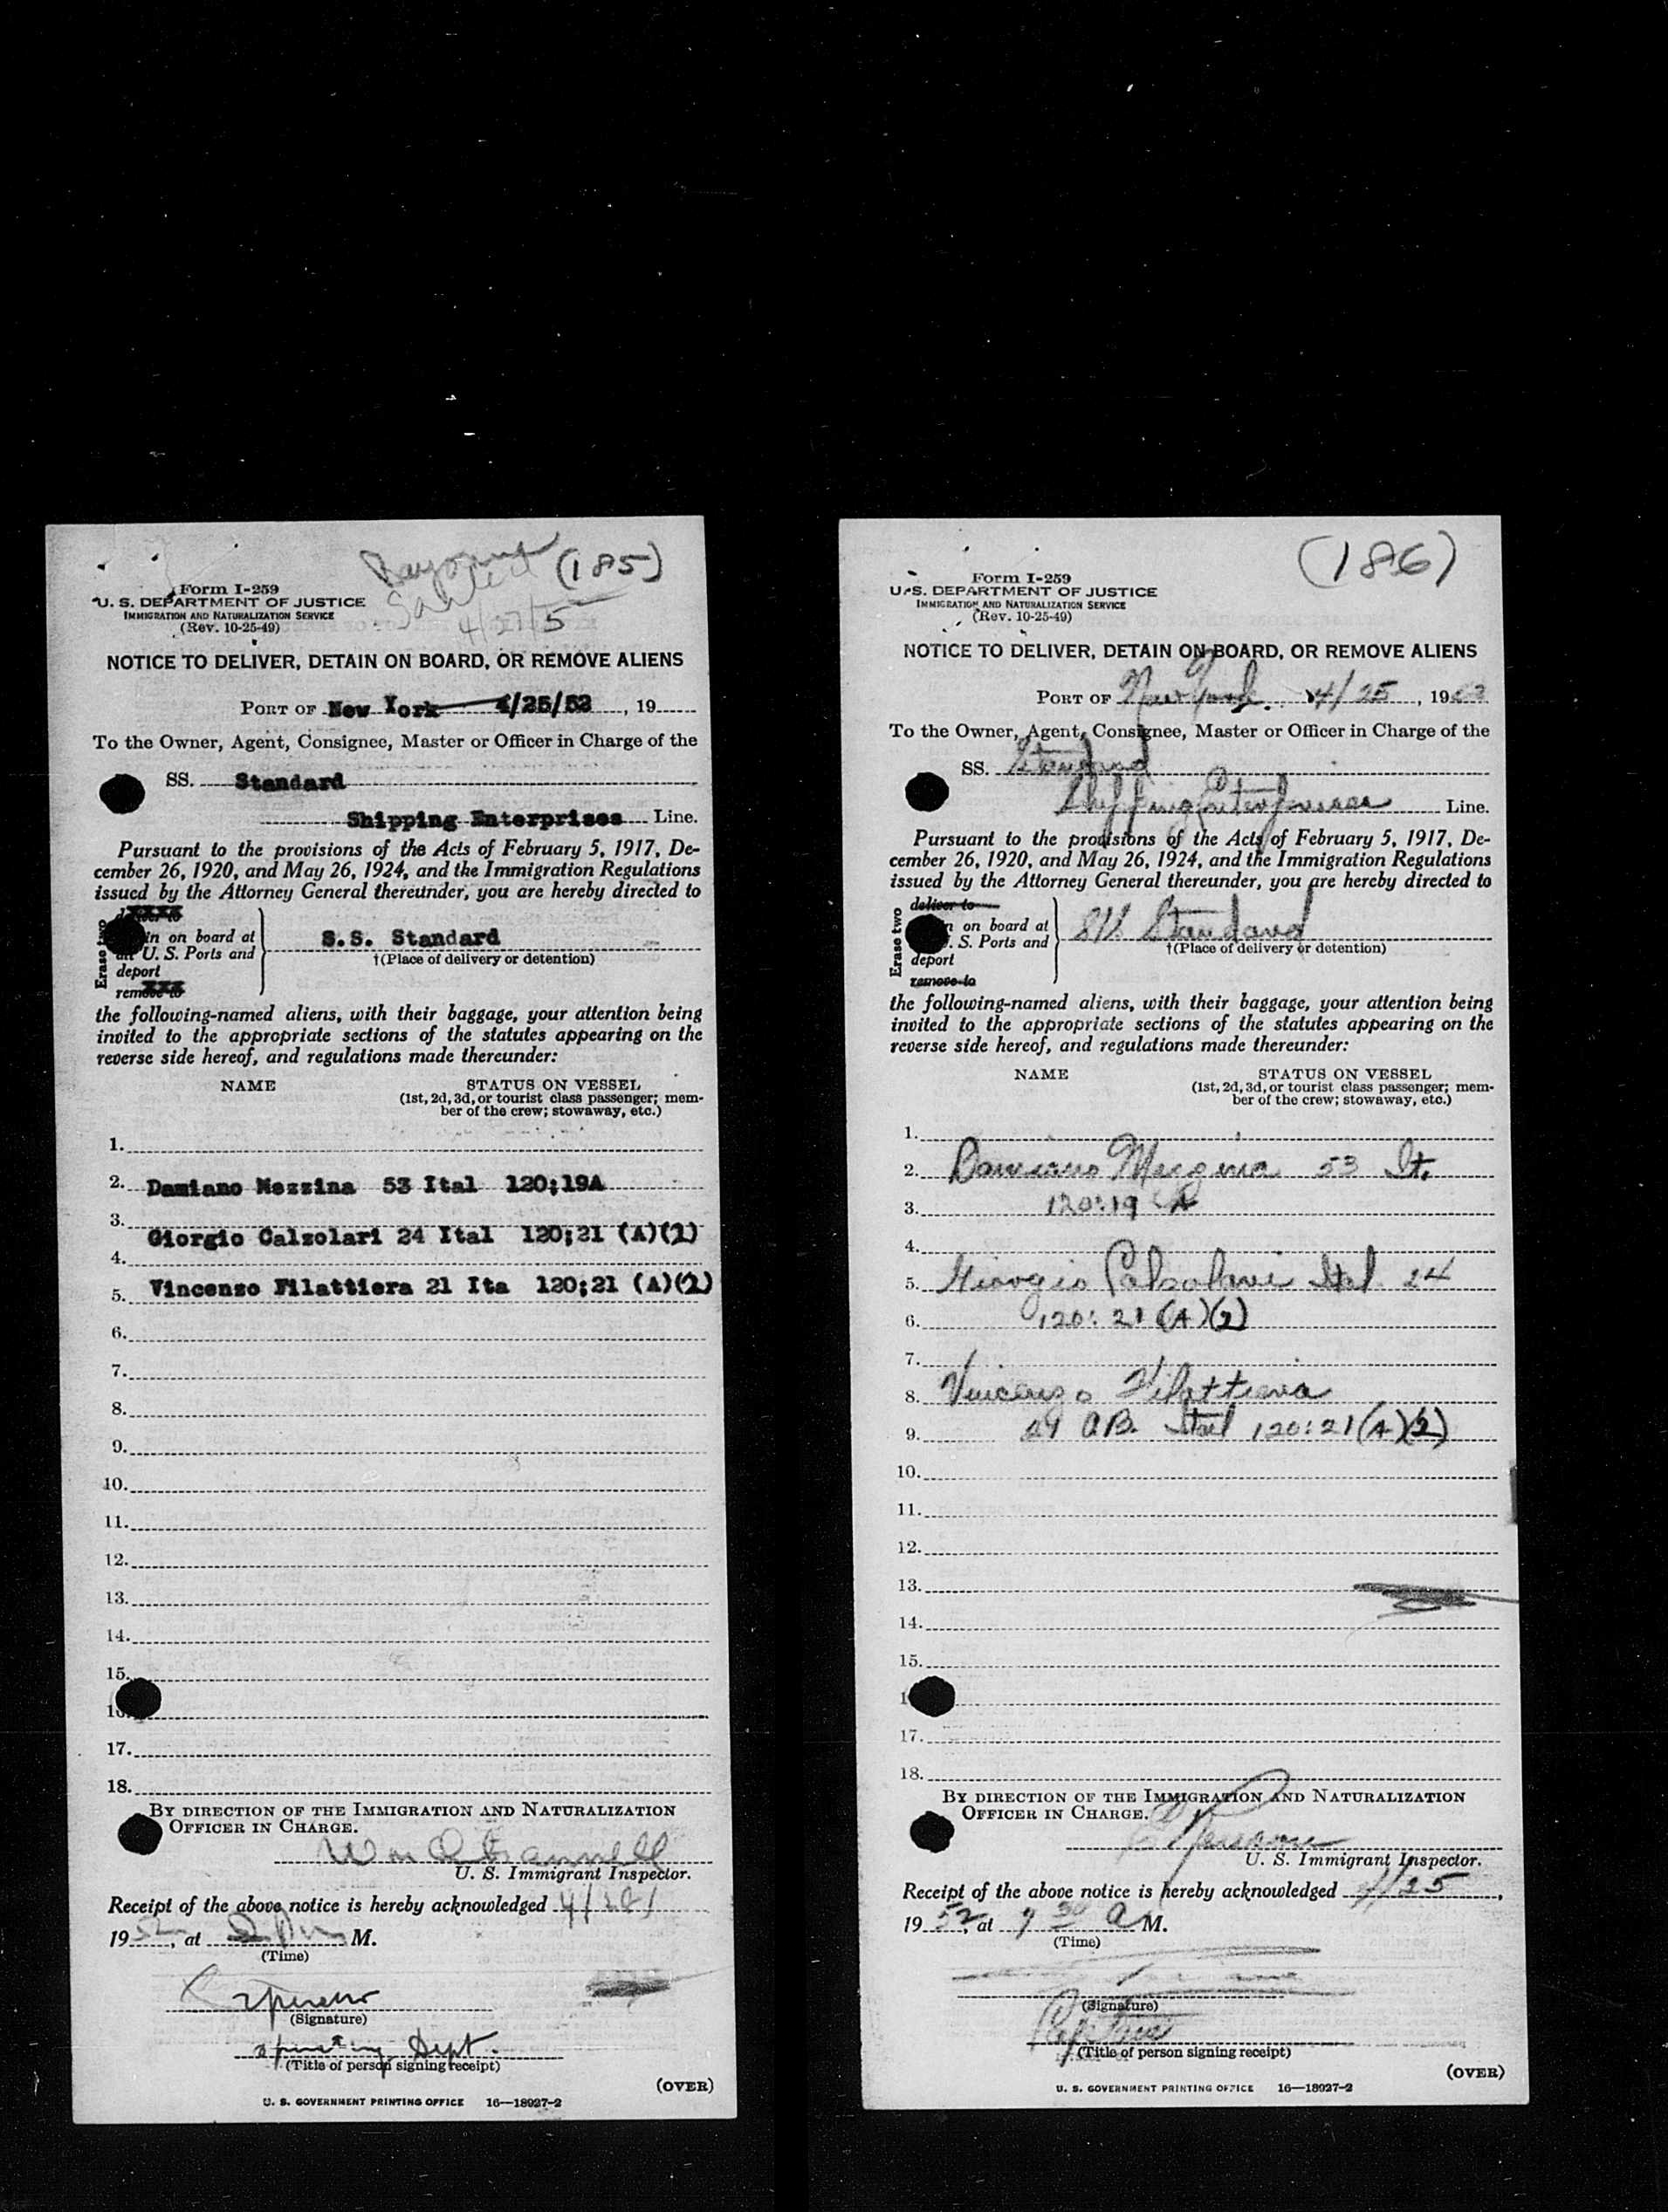 Bayonne (185)
Sailed
4/27/5
Form I-259
U. S. DEPARTMENT OF JUSTICE
IMMIGRATION AND NATURALIZATION SERVICE
(Rev. 10-25-49)
NOTICE TO DELIVER, DETAIN ON BOARD, OR REMOVE ALIENS
PORT OF New York 4/25/52, 19
To the Owner, Agent, Consignee, Master or Officer in Charge of the
SS. Standard
Shipping Enterprises Line.
Pursuant to the provisions of the Acts of February 5, 1917, De-
cember 26, 1920, and May 26, 1924, and the Immigration Regulations
issued by the Attorney General thereunder, you are hereby directed to
Erase two
in on board at
U. S. Ports and
deport
remove to
S.S. Standard
†(Place of delivery or detention)
the following-named aliens, with their baggage, your attention being
invited to the appropriate sections of the statutes appearing on the
reverse side hereof, and regulations made thereunder:
NAME STATUS ON VESSEL
(1st, 2d, 3d, or tourist class passenger; mem-
ber of the crew; stowaway, etc.)
1.
2. Damiano Mezzina 53 Ital 120;19A
3.
Giorgio Calzolari 24 Ital 120;21 (A)(2)
4.
Vincenzo Filattiera 21 Ita 120;21 (A)(2)
5.
6.
7.
8.
9.
10.
11.
12.
13.
14.
15.
16.
17.
18.
BY DIRECTION OF THE IMMIGRATION AND NATURALIZATION
OFFICER IN CHARGE.
U. S. Immigrant Inspector.
Receipt of the above notice is hereby acknowledged
1952, at M.
(Time)
(Signature)
operating Dept.
(Title of person signing receipt)
(OVER)
U. S. GOVERNMENT PRINTING OFFICE 16—18927-2
(186)
Form I-259
U. S. DEPARTMENT OF JUSTICE
IMMIGRATION AND NATURALIZATION SERVICE
(Rev. 10-25-49)
NOTICE TO DELIVER, DETAIN ON BOARD, OR REMOVE ALIENS
PORT OF New York, 4/25, 1952
To the Owner, Agent, Consignee, Master or Officer in Charge of the
SS. Standard
Shipping Enterprises Line.
Pursuant to the provisions of the Acts of February 5, 1917, De-
cember 26, 1920, and May 26, 1924, and the Immigration Regulations
issued by the Attorney General thereunder, you are hereby directed to
Erase two
deliver to
n on board at
S. Ports and
deport
remove to
S/S Standard
†(Place of delivery or detention)
the following-named aliens, with their baggage, your attention being
invited to the appropriate sections of the statutes appearing on the
reverse side hereof, and regulations made thereunder:
NAME STATUS ON VESSEL
(1st, 2d, 3d, or tourist class passenger; mem-
ber of the crew; stowaway, etc.)
1.
2. Damiano Mezzina 53 It.
3. 120:19 A
4.
5. Giorgio Calzolari Ital 24
6. 120:21 (A)(2)
7.
8. Vincenzo Filattiera
9. 21 AB. Ital 120:21(A)(2)
10.
11.
12.
13.
14.
15.
1
17.
18.
BY DIRECTION OF THE IMMIGRATION AND NATURALIZATION
OFFICER IN CHARGE.
U. S. Immigrant Inspector.
Receipt of the above notice is hereby acknowledged 4/25,
1952, at 9 30 A M.
(Time)
(Signature)
Captain
(Title of person signing receipt)
(OVER)
U. S. GOVERNMENT PRINTING OFFICE 16—18927-2